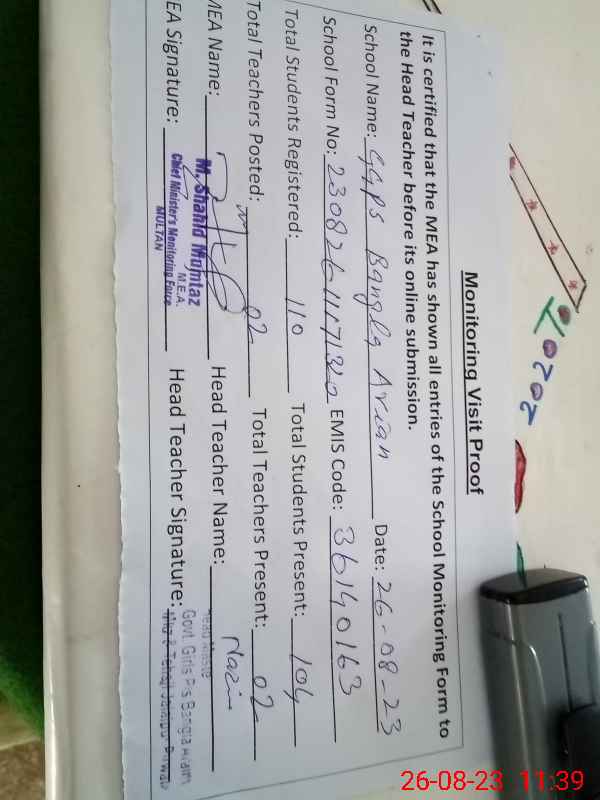 Monitoring Visit Proof
It is certified that the MEA has shown all entries of the School Monitoring Form to
the Head Teacher before its online submission.
School Name: GGPS Bangla Araian Date: 26-08-23
School Form No: EMIS Code: 36140163
Total Students Registered: 110 Total Students Present: 104
Total Teachers Posted: 02 Total Teachers Present: 02
MEA Name: Head Teacher Name:
M. Shahid Mumtaz
M.E.A.
EA Signature: Head Teacher Signature:
Chief Minister's Monitoring Force
MULTAN
Govt. Girls P/s Bangla
2022
26-08-23 11:39